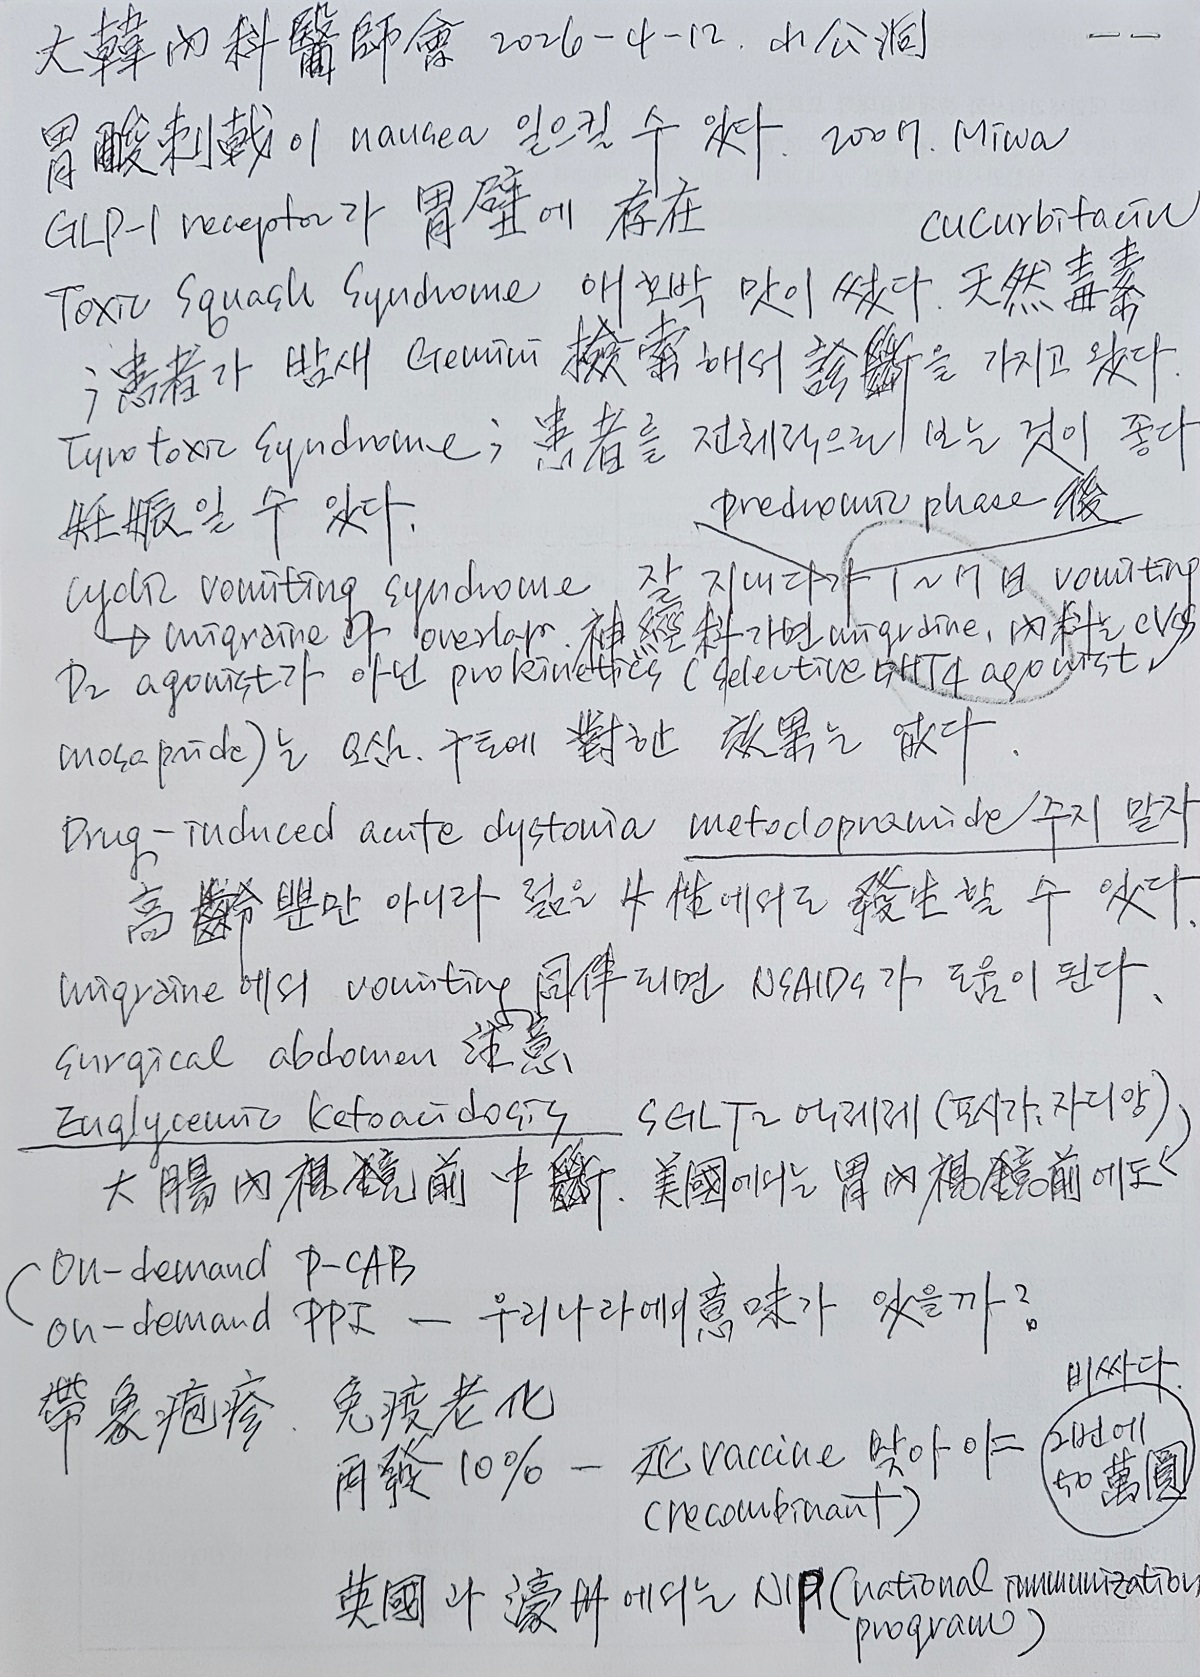 大韓內科醫師會 2026-4-12. 小公洞
胃酸刺戟이 nausea 일으킬 수 있다. 2007. Miwa
GLP-1 receptor가 胃壁에 存在
cucurbitacin
Toxic Squash Syndrome 애호박 맛이 썼다. 天然毒素
; 患者가 밤새 Gemini 檢索해서 診斷을 가지고 왔다.
Tyrotoxic Syndrome; 患者를 전체적으로 보는 것이 좋다
妊娠일 수 있다.
prodromic phase 後
Cyclic vomiting syndrome 잘 지내다가 1~7日 vomiting
→ migraine과 overlap. 神經科 가면 migraine, 內科는 CVS
D2 agonist가 아닌 prokinetics (selective 5HT4 agonist,
mosapride)는 오심. 구토에 對한 效果는 없다.
Drug-induced acute dystonia metoclopramide 주지 말자
高齡뿐만 아니라 젊은 女性에서도 發生할 수 있다.
migraine에서 vomiting 同伴되면 NSAIDs가 도움이 된다.
Surgical abdomen 注意
Euglycemic Ketoacidosis SGLT2 억제제 (포시가, 자디앙)
大腸內視鏡前 中斷. 美國에서는 胃內視鏡前에도
On-demand P-CAB
On-demand PPI — 우리나라에서 意味가 있을까?
帶象疱疹. 免疫老化
비싸다.
再發 10% – 死vaccine 맞아야 (recombinant)
2번에
50萬圓
英國과 濠州에서는 NIP (national immunization
program)